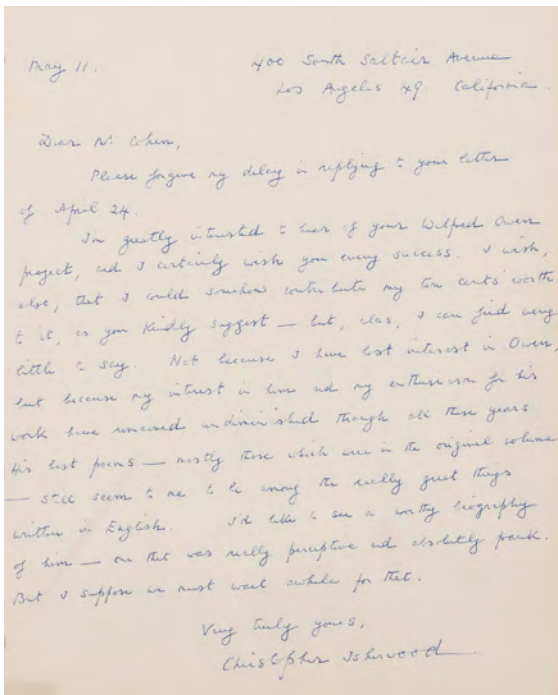 May 11.
400 South Saltair Avenue
Los Angeles 49. California.
Dear Mr. Cohen,
Please forgive my delay in replying to your letter
of April 24.
I'm greatly interested to hear of your Wilfred Owen
project, and I certainly wish you every success. I wish,
also, that I could somehow contribute my two cents worth
to it, as you kindly suggest — but, alas, I can find very
little to say. Not because I have lost interest in Owen,
but because my interest in him and my enthusiasm for his
work have remained undiminished through all these years.
His best poems — mostly those which were in the original volume
— still seem to me to be among the really great things
written in English. I'd like to see a worthy biography
of him — one that was really perceptive and absolutely frank.
But I suppose we must wait awhile for that.
Very truly yours,
Christopher Isherwood